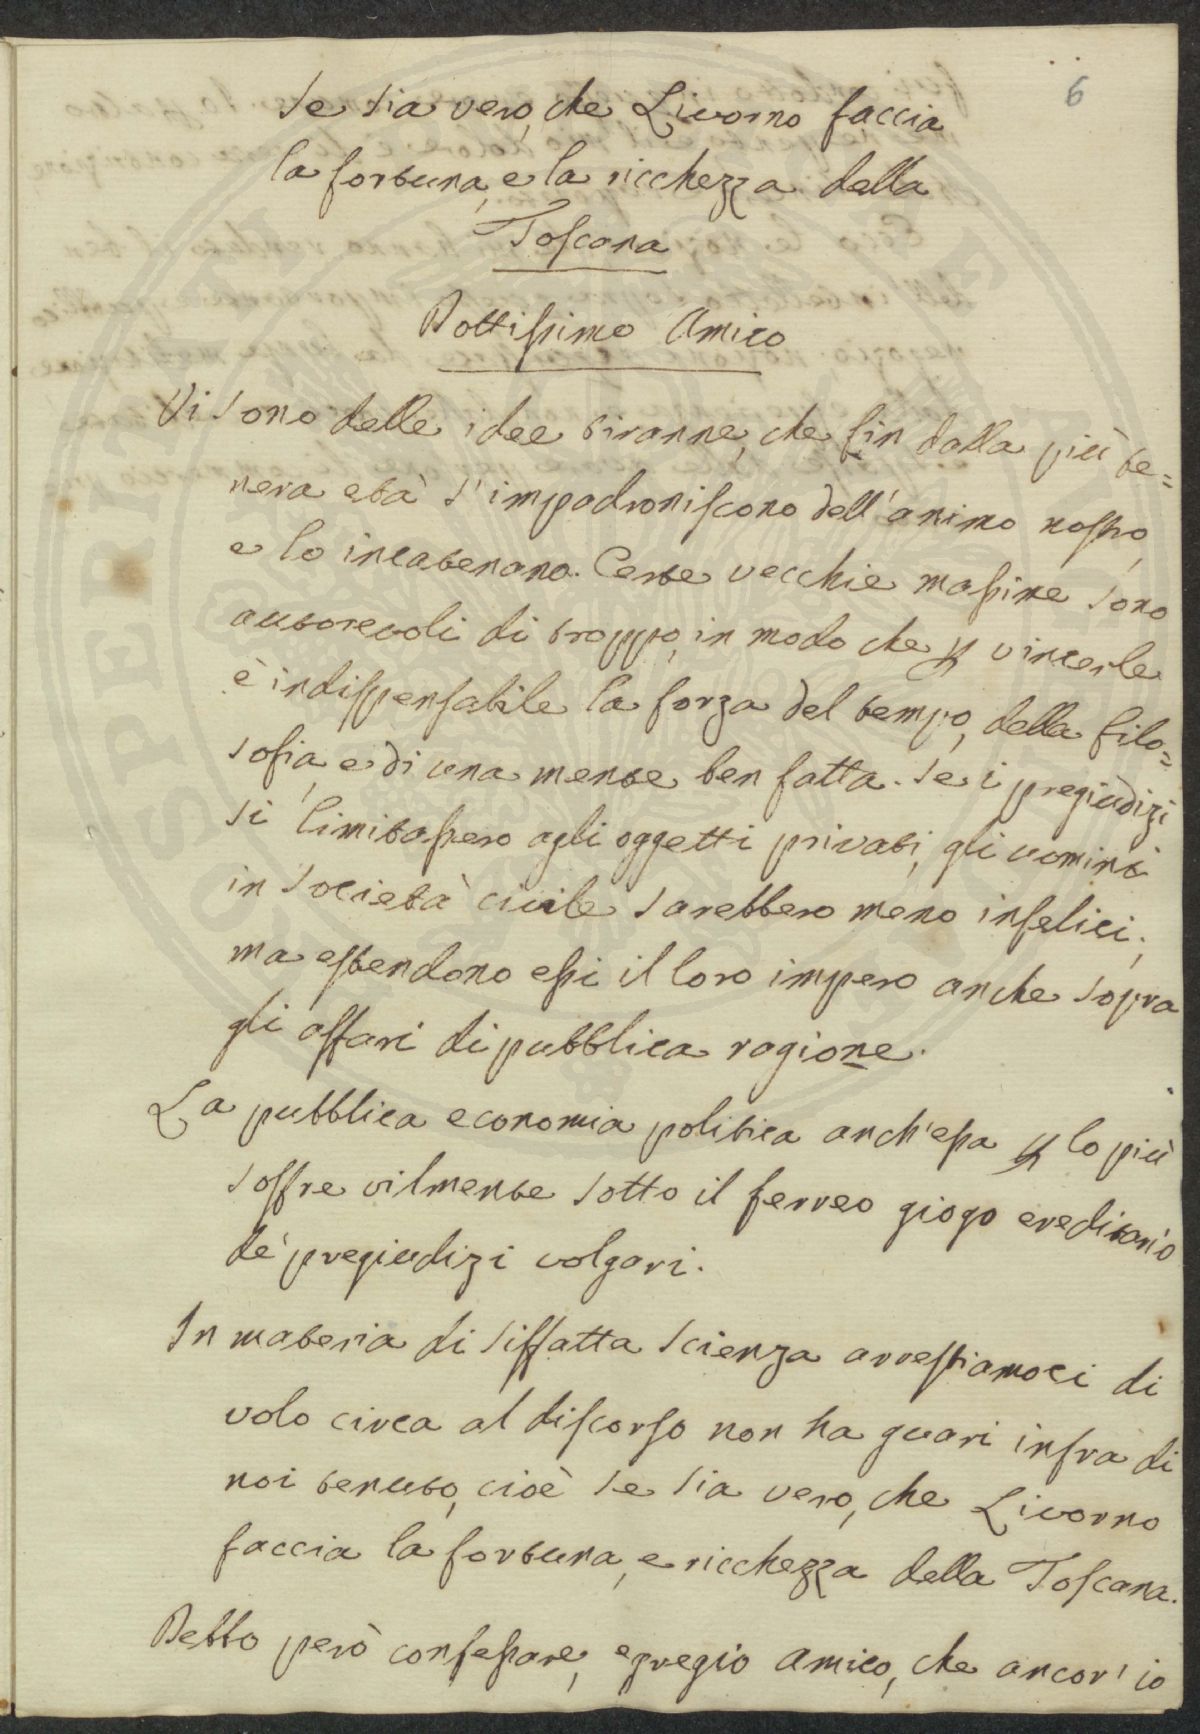 6
Se sia vero, che Livorno faccia
la fortuna, e la ricchezza della
Toscana
Dottissimo Amico
Vi sono delle idee tiranne, che fin dalla più te=
nera età s'impadroniscono dell'animo nostro,
e lo incatenano. Certe vecchie massime sono
autorevoli di troppo, in modo che p vincerle
è indispensabile la forza del tempo, della filo=
sofia, e di una mente ben fatta. Se i pregiudizi
si limitassero agli oggetti privati, gli uomini
in società civile sarebbero meno infelici;
ma estendono essi il loro impero anche sopra
gli affari di pubblica ragione.
La pubblica economia politica anch'essa p lo più
soffre vilmente sotto il ferreo giogo ereditario
de' pregiudizi volgari.
In materia di siffatta scienza arrestiamoci di
volo circa al discorso non ha guari infra di
noi tenuto, cioè se sia vero, che Livorno
faccia la fortuna, e ricchezza della Toscana.
Debbo però confessare, egregio amico, che ancor' io